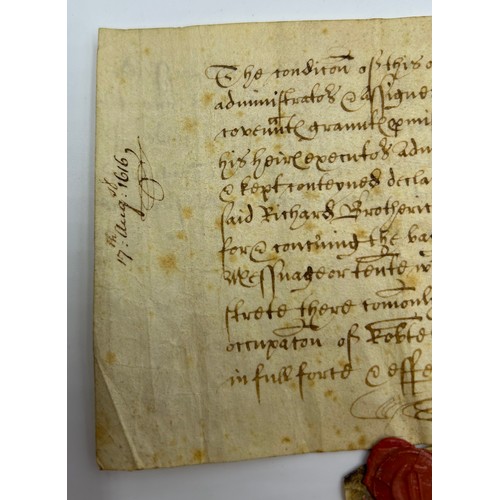 The condicōn of this o
administratōrs & assigne
covenᵃⁿtℓ grauntℓ & ꝑmi
his heirℓ executōrs adm
& kept conteyned decla
said Richard Brotheric
for & concˀning the ba
Messuage or tente w
strete there comonly
occupacōn of Robte
in full force & effe
17th: Aug: 1616